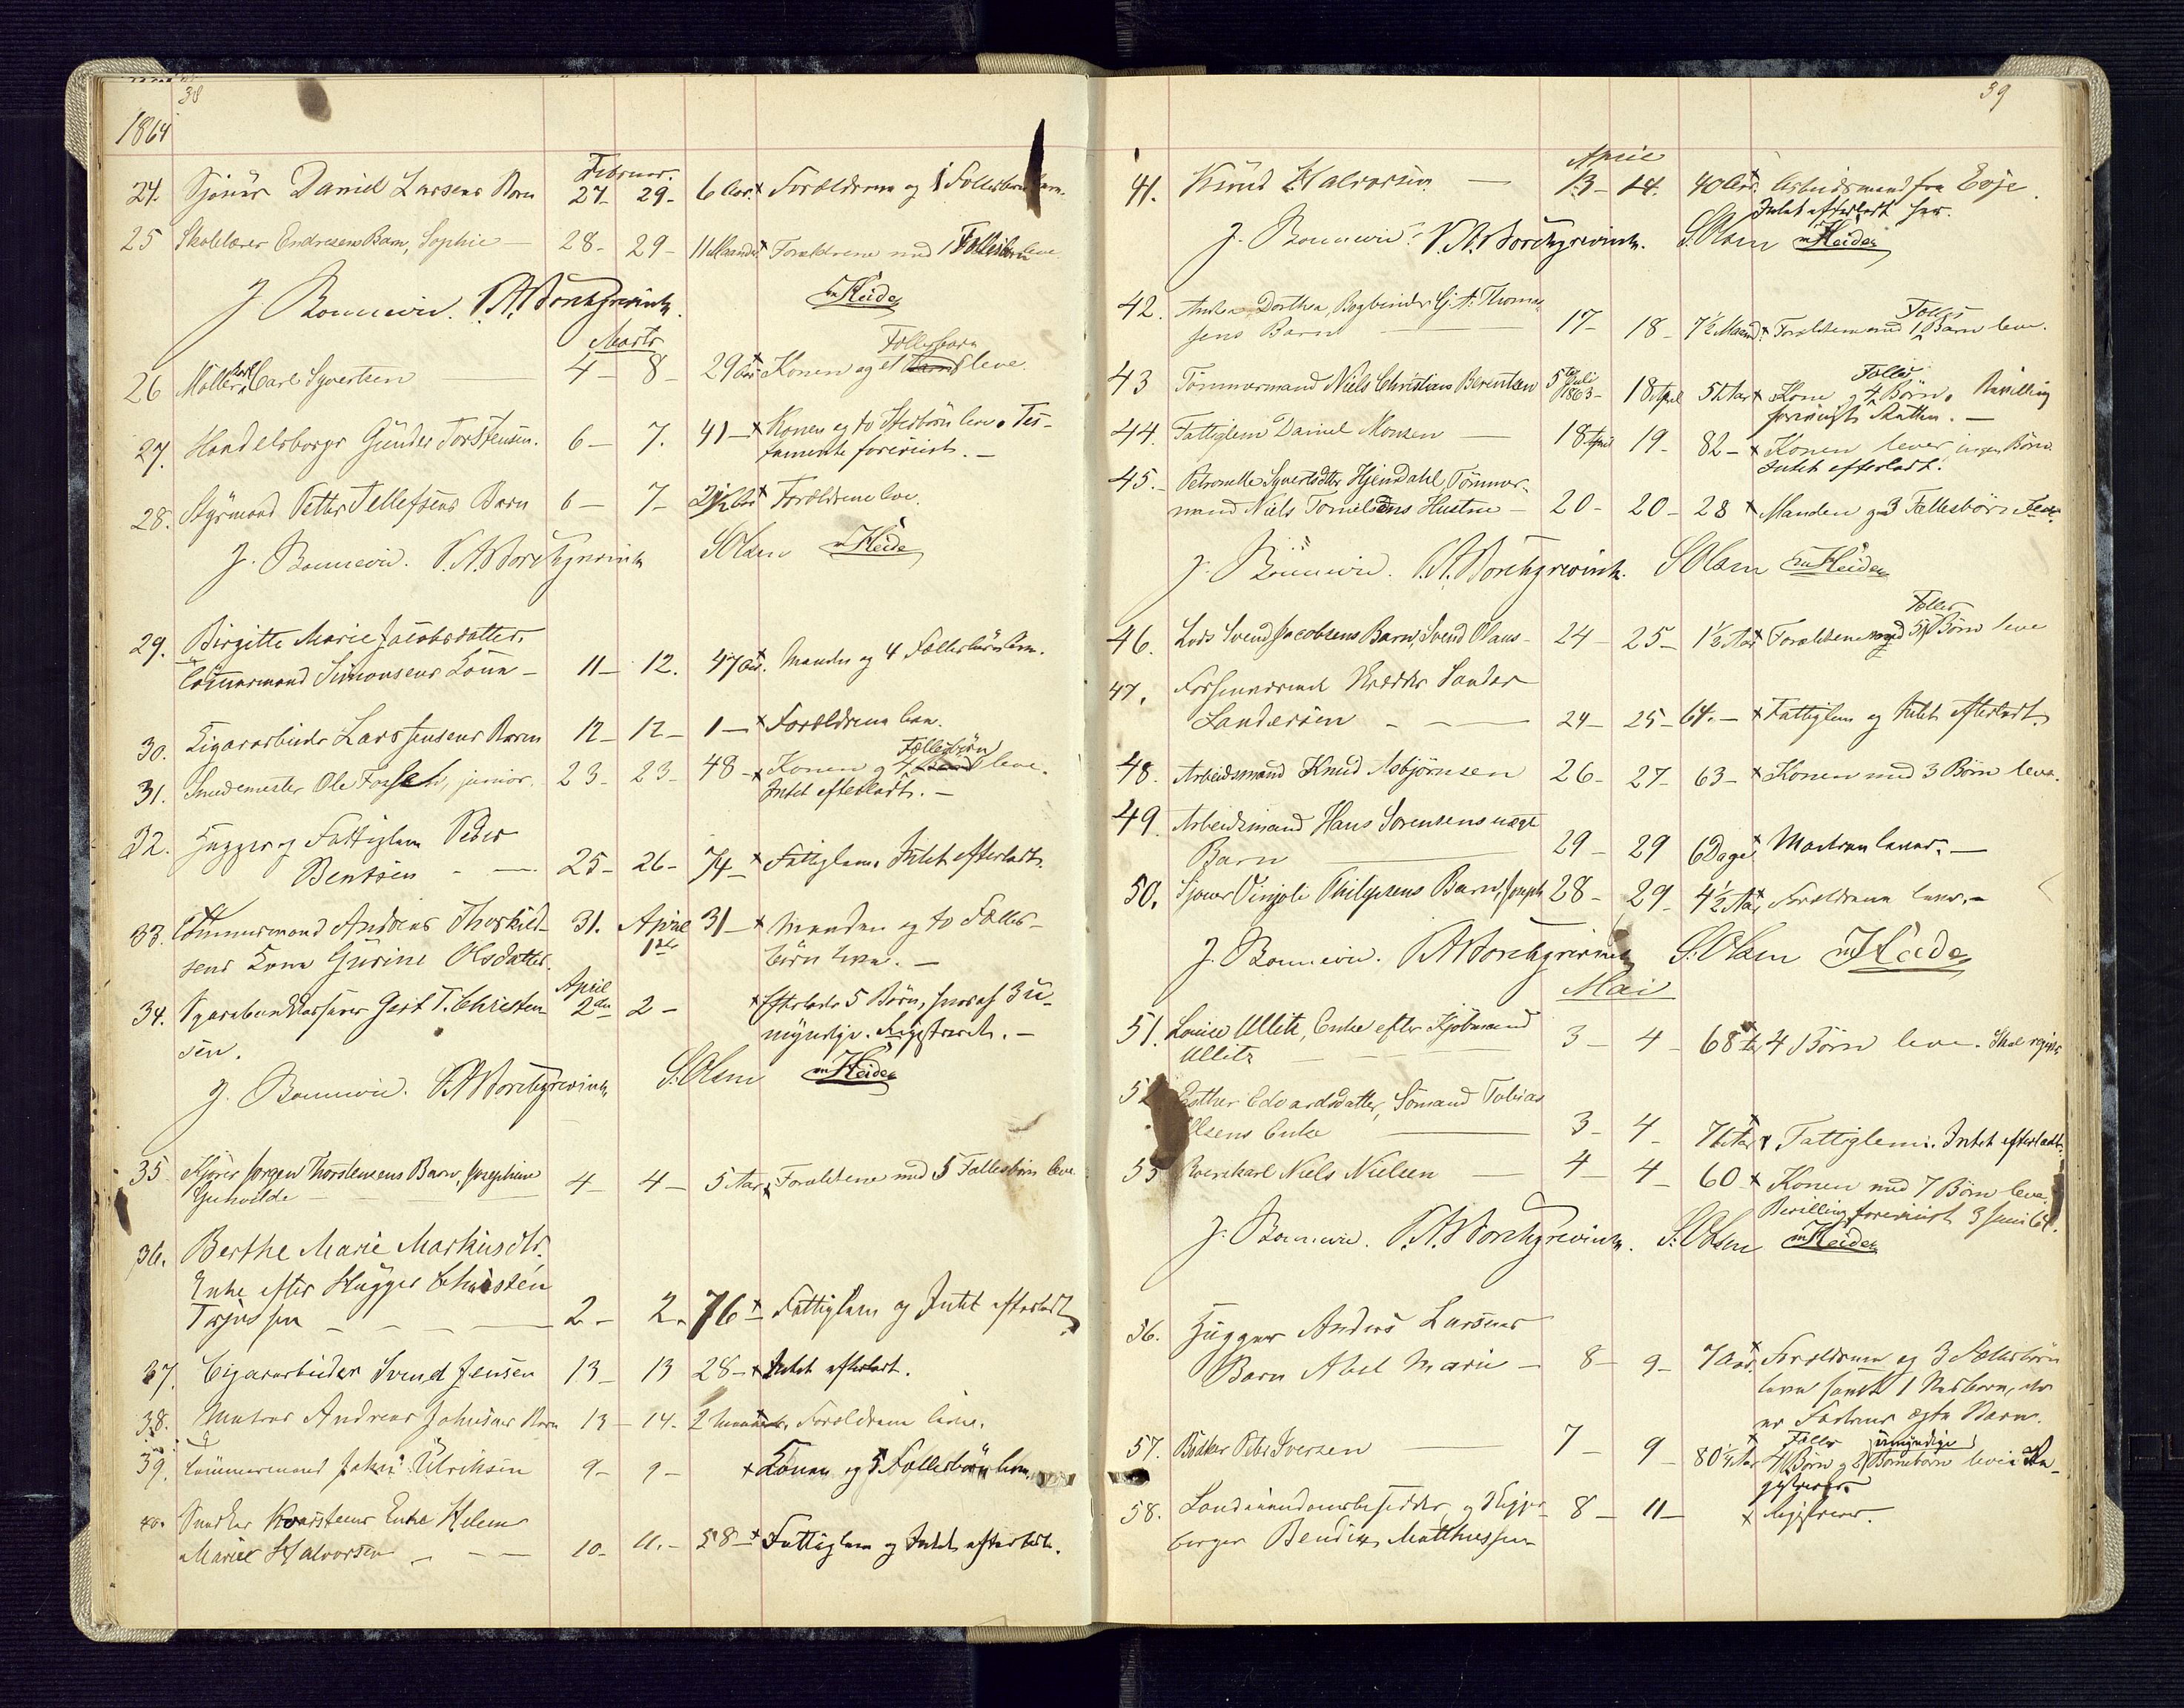 38
1864
Februar.
24. Sjouer Daniel Larsens Barn 27- 29- 6 Aar. x Forældrene og 1 Fællesbarn leve.
25 Skolelærer Endresens Barn, Sophie — 28- 29- 11 Maaneder x Forældrene med 1 Fællesbarn leve.
J. Bonnevie. V.A. Borchgrevink. Heide
Marts
Fællesbarn
26 Møller Carl Syvertsen — 4- 8- 29 Aar x Konen og et leve.
27. Handelsborger Gunder Torstensen. 6- 7. 41- x Konen og to Stedbørn leve. Tes-
tamente foreviist. —
28. Styrmand Petter Tellefsens Barn 6- 7- 2½ Aar x Forældrene leve.
J. Bonnevie. V.A. Borchgrevink S. Olsen Heide
29. Birgitte Marie Jacobsdatter,
Tømmermand Simonsens Kone - 11- 12. 47 Aar. x Manden og 4 Fællesbørn leve.
30. Cigararbeider Lars Jensens Barn 12- 12- 1- x Forældrene leve.
Fællesbørn
31. Smedemester Ole junior. 23- 23- 48- x Konen og 4 leve.
Intet efterladt. —
32. Hugger og Fattiglem Peder
Bentsen - — 25- 26- 74- x Fattiglem. Intet efterladt.
33. Tømmermand Andreas Thorkild- 31. April 31- x Manden og to Fælles-
sens Kone Gurine Olsdatter. 1ste børn leve. —
April
34. Sparebankkasserer Gert T. Christen- 2den 2- x Efterlader 5 Børn, hvoraf 3 u-
sen. myndige. Registreret. —
J. Bonnevie. V.A. Borchgrevink S. Olsen Heide
35 Kjører Jørgen Thorstensens Barn, Josephine 4- 4- 5 Aar x Forældrene med 5 Fællesbørn leve
Gunvilde —
36. Berthe Marie Markusdtr.
Enke efter Hugger Christen
Terjessen — — — 2- 2- 76- x Fattiglem og Intet efterladt.
37. Cigararbeider Svend Jensen 13- 13 28- x Intet efterladt.
38. Matros Andreas Johnsens Barn 13- 14. 2 Forældrene leve.
39. Tømmermand Johan Ulriksen 9- 9- x Konen og 5 Fællesbørn leve.
40. Enke Helene
Marie Halvorsen - — — 10- 11.- 58- x Fattiglem og Intet efterladt.
39
April
41. Knud Halvorsen — 13- 14. 40 Aar. x Arbeidsmand fra Evje.
Intet efterladt her.
J. Bonnevie. V.A. Borchgrevink. S. Olsen Heide
42. Dorthea, Bogbinder G. A. Thomas- Fælles
sens Barn — 17- 18- 7½ Maaned x Forældrene med 1 Barn leve.
Fælles
43 Tømmermand Niels Christian Berentsen 5te Juli 1863- 18 April 51 Aar x Kone og 4 Børn. Bevilling
foreviist Skiftern. —
44. Fattiglem Daniel Monsen — 18 April 19- 82- x Konen lever, ingen Børn.
Intet efterladt.
45.- Petronelle Syvertsdtter Hjemdahl, Tømmer-
mand Niels Tønnesens Hustru - 20- 20- 28 x Manden og 3 Fællesbørn leve.
J. Bonnevie. V.A. Borchgrevink. S. Olsen Heide
Fælles
46. Lods Svend Jacobsens Barn, Svend Olaus- 24- 25- 1½ Aar x Forældrene med 5 Børn leve
47. Forhenværende Kræmmer Sander
Sandersen - — — 24- 25- 64.- x Fattiglem og Intet efterladt.
48. Arbeidsmand Knud Asbjørnsen 26- 27- 63- x Konen med 3 Børn leve.
49. Arbeidsmand Hans Sørensens uægte
Barn — 29- 29 6 Dage x Moderen lever. —
50. Sjouer Philipsens Barn, Joseph 28- 29- 4½ Aar x Forældrene leve. —
J. Bonnevie. V.A. Borchgrevink S. Olsen Heide
Mai
51. Louise Ullitz, Enke efter Kjøbmand 3- 4- 68 Aar x 4 Børn leve. Skal registr
Ullitz — — —
52 Esther Edvardsdatter, Sømand Tobias
Olsens Enke — 3- 4- 76 Aar x Fattiglem. Intet efterladt.
53 Niels Nielsen — 4- 4- 60- x Konen med 7 Børn leve.
Bevilling foreviist 3 Juni 64.
J. Bonnevie. V.A. Borchgrevink. S. Olsen Heide
56. Hugger Anders Larsens
Barn Abel Marie - 8- 9- 7 Aar. x Forældrene og 3 Fællesbørn
leve samt 1 Halvbarn, der
er Faderens ægte Barn.
57. Bødker Peder Iversen — 7- 9- 80½ Aar x Fælles umyndige
4 Børn og 2 Børnebørn leve. Re-
gistreret.
58. og Skipper- 8- 11- x Registreret.
borger Bendix Matthiessen